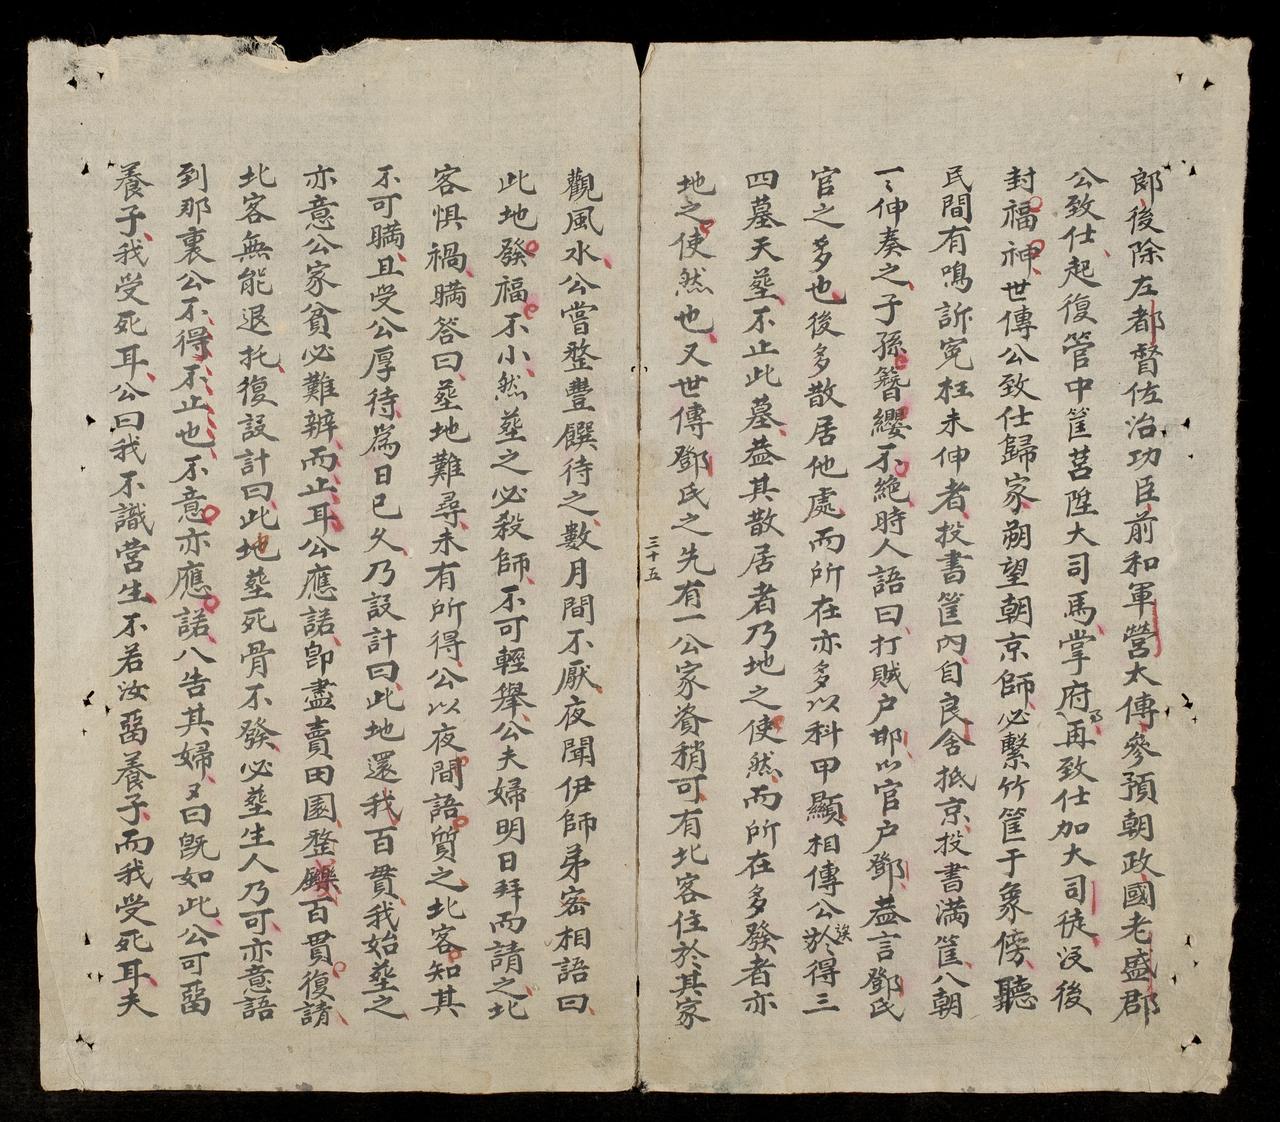 郎後除左都督佐治功臣前和軍營太傳參預朝政國老盛郡
公致仕起復管中筐莒陞大司馬掌府再致仕加大司徒没後
封福神世傳公致仕歸家朔望朝京師必繫竹筐于象傍聽
民間有鳴訴寃枉未伸者投書筐内自良舍抵京投書滿筐入朝
一〻伸奏之子孫簪纓不絶時人語曰打賊户鄭以官户鄧葢言鄧氏
官之多也後多散居他處而所在亦多以科甲顯相傳公誤於得三
四墓天塟不止此墓葢其散居者乃地之使然而所在多發者亦
地之使然也又世傳鄧氏之先有一公家資稍可有北客住於其家
三十五
觀風水公嘗整豐饌待之數月間不厭夜聞伊師弟密相語曰
此地發福不小然塟之必殺師不可輕舉公夫婦明日拜而請之北
客惧禍瞞答曰塟地難尋未有所得公以夜間語質之北客知其
不可瞞且受公厚待為日已久乃設計曰此地還我百貫我始塟之
亦意公家貧必難辨而止耳公應諾卽盡賣田園整鑠百貫復請
北客無能退托復設計曰此地塟死骨不發必塟生人乃可亦意語
到那裏公不得不止也不意亦應諾入告其婦又曰既如此公可畱
養子我受死耳公曰我不識営生不若汝畱養子而我受死耳夫